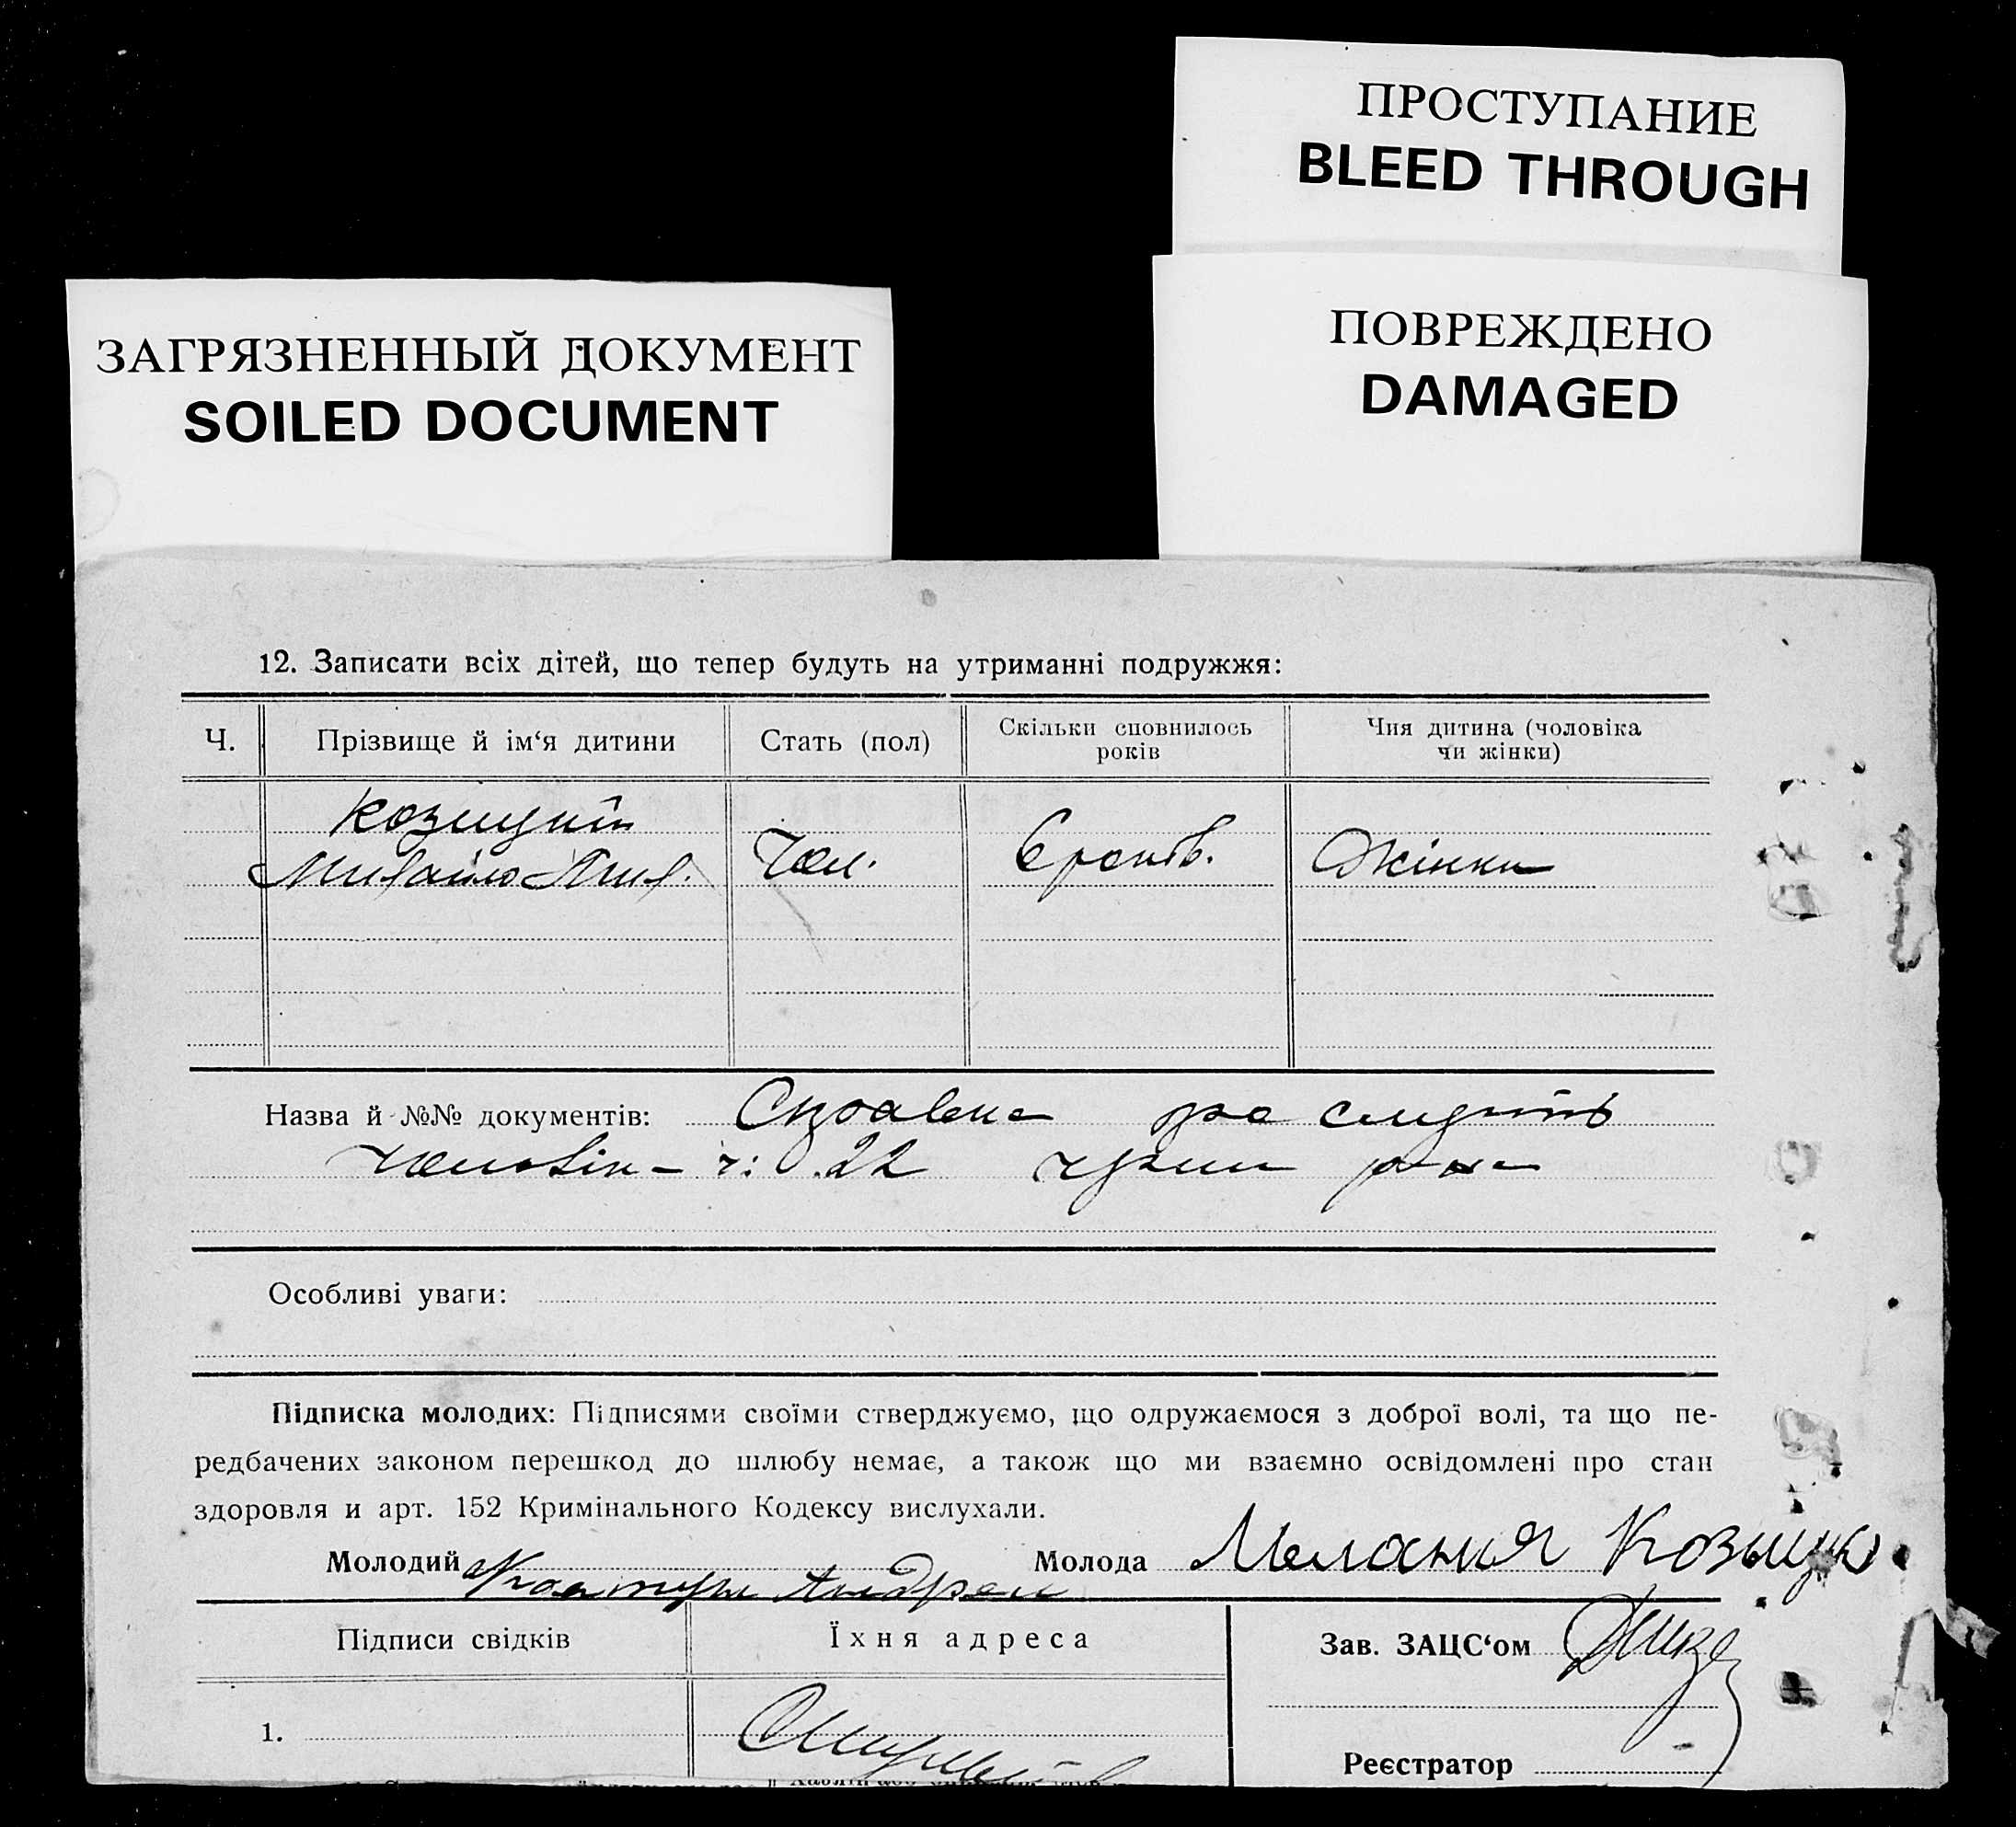 ПРОСТУПАНИЕ
BLEED THROUGH
ЗАГРЯЗНЕННЫЙ ДОКУМЕНТ
SOILED DOCUMENT
ПОВРЕЖДЕНО
DAMAGED
12. Записати всіх дітей, що тепер будуть на утриманні подружжя:
Ч. Прізвище й ім‘я дитини Стать (пол) Скільки сповнилось років Чия дитина (чоловіка чи жінки)
Козицкий
Михайло Мих. Чол. 6 років. Жінки
Назва й №№ документів: Справка про смерть
чоловіка ч: 22
Особливі уваги:
Підписка молодих: Підписями своїми стверджуємо, що одружаємося з доброї волі, та що пе-
редбачених законом перешкод до шлюбу немає, а також що ми взаємно освідомлені про стан
здоровля и арт. 152 Кримінального Кодексу вислухали.
Молодий Андрей Молода Мелания
Підписи свідків Їхня адреса Зав. ЗАЦС‘ом
1.
Реєстратор